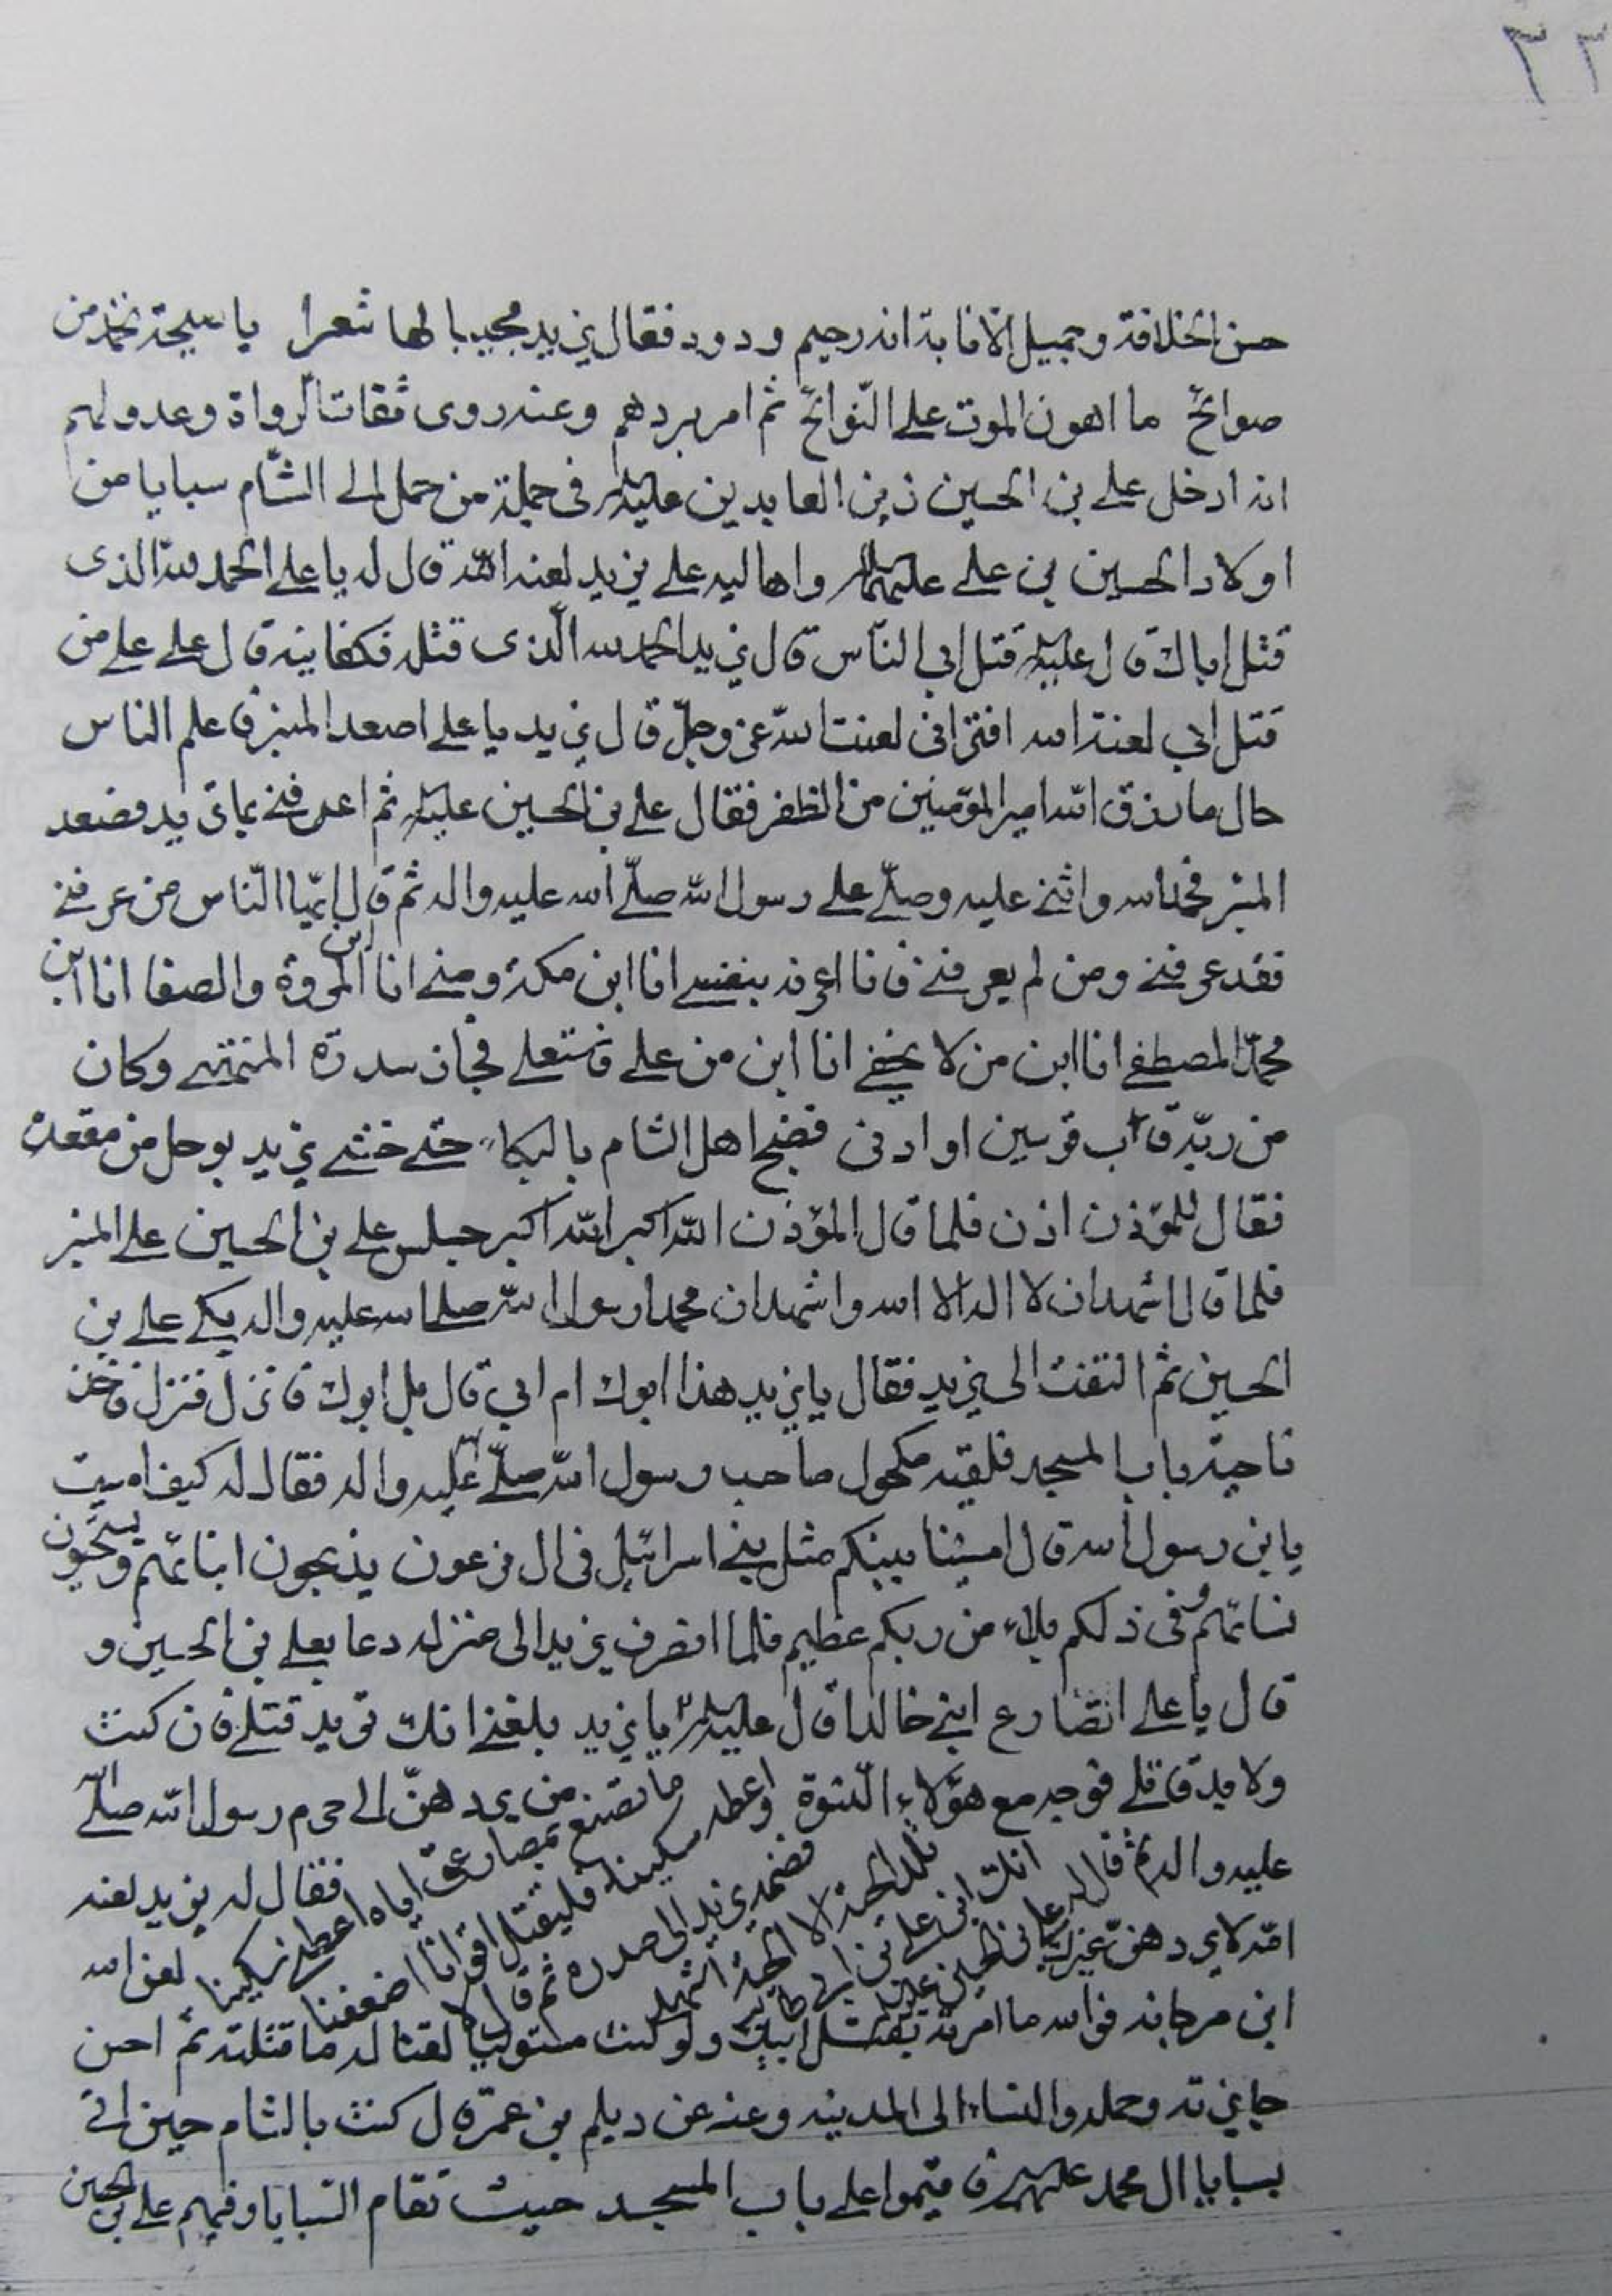 ٢٢
حسن الخلافة وجميل الانابة انه رحيم ودود فقال يزيد مجيبا لها شعرا يا صيحة تحمد من
صوائح ما اهون الموت على النّوائح ثم امر بردهم وعنه روى ثقات الرواة وعدولهم
انه ادخل على بن الحسين زين العابدين عليه السلم فى جملة من حمل الى الشّام سبايا من
اولاد الحسين بن على عليهما السلم واهاليه على يزيد لعنه الله قال له يا على الحمد لله الذى
قتل اباك قال عليه السلم قتل ابى النّاس قال يزيد الحمد لله الّذى قتله فكفانيه قال على على من
قتل ابى لعنة الله افترانى لعنت الله عز وجلّ قال يزيد يا على اصعد المنبر فاعلم الناس
حال ما رزق الله امير المؤمنين من الظفر فقال على بن الحسين عليه السلم ثم اعرفنى بما تريد فصعد
المنبر فحمد الله واثنى عليه وصلّى على رسول الله صلّى الله عليه واله ثم قال ايّها النّاس من عرفنى
فقد عرفنى ومن لم يعرفنى فانا اعرفه بنفسى انا ابن مكة ومنى انا ابن المروة والصفا انا ابن
محمّد المصطفى انا ابن من لا يخفى انا ابن من على فاستعلى فجاز سدرة المنتهى وكان
من ربّه قاب قوسين او ادنى فضج اهل الشام بالبكاء حتى خشى يزيد يوحل من مقعده
فقال للمؤذن اذن فلما قال المؤذن الله اكبر الله اكبر جلس على بن الحسين على المنبر
فلما قال اشهد ان لا اله الا الله واشهد ان محمدا رسول الله صلى الله عليه واله بكى على بن
الحسين ثم التفت الى يزيد فقال يا يزيد هذا ابوك ام ابى قال بل ابوك فانزل فنزل فاخذ
ناحية باب المسجد فلقيه مكحول صاحب رسول الله صلّى الله عليه واله فقال له كيف امسيت
يا بن رسول الله قال امسينا بينكم مثل بنى اسرائيل فى ال فرعون يذبحون ابنائهم ويستحيون
نسائهم وفى ذلكم بلاء من ربكم عظيم فلما انصرف يزيد الى منزله دعا بعلى بن الحسين و
قال يا على اتصارع ابنى خالدا قال عليه السلم يا يزيد بلغنى انك تريد قتلى فان كنت
ما تصنع بمصارعتى اياه اعطنى سكينا
واعطه سكينا فليقتل اقوانا اضعفنا
فضمه يزيد الى صدره ثم قال
لا تلد الحية الا الحية اشهد
انك ابن على بن ابى طالب
ثم قال له على بن الحسين عليه السلم
ولا بد قاتلى فوجه مع هؤلاء النّسوة من يردهنّ الى حرم رسول الله صلّى الله
عليه واله فقال له يزيد لعنه
الله لا يردهنّ غيرك لعن الله
ابن مرجانه فو الله ما امرته بقتل ابيك ولو كنت متوليا لقتاله ما قتلته ثم احسن
جايزته وحمله والنساء الى المدينه وعنه عن ديلم بن عمر قال كنت بالشام حين اتى
بسبايا ال محمد عليهم السلم فاقيموا على باب المسجد حيث تقام السّبايا وفيهم على بن الحسين